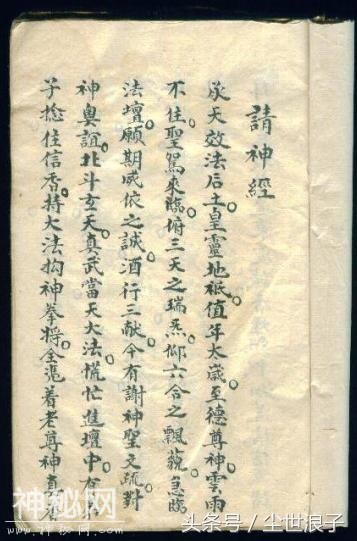 請神經
承天效法后土皇靈地祇值年太歲至德尊神雲雨
不住聖駕來臨俯三天之瑞炁仰六合之飄藐急臨
法壇願期咸依之誠酒行三献今有謝神聖文疏對
神輿誼北斗玄天真武當天大法慌忙進壇中
子捻住信香持大法拘神拳将全憑着老尊神
神秘网
头条号 / 尘世浪子